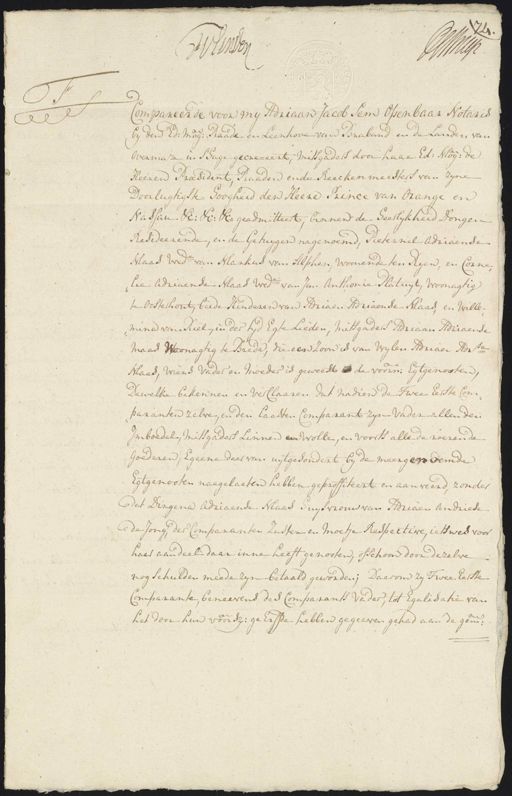 74.
Compareerde voor my Adriaan Jacob Sem Openbaar Notaris
by den Ed: Mog: Raade en Leenhove van Braband en de Landen van
Overmaze in s'Hage gecreeert, mitsgaders door haar Ed: Mog: de
Heeren President, Raaden ende Reekenmeesters van zyne
Doorlugtigste Hoogheid den Heere Prince van Orange en
Nassau &c: &c: &c geadmitteert, binnen de Heerlykheid Dongen
Resideerende, en de Getuygen nagenoemd, Pieternel Adriaense
Klaas wed.e van van Alphen, woonende ten Ryen, en Corne,
lia Adriaense Klaas wed.e van Jan Anthonie woonagtig
te Oosterhout, beide Kinderen van Adriaen Adriaense Klaas, en Wille,
mina van Riel, in der tyd Egte Lieden, mitsgaders Adriaan Adriaense
Maas woonagtig te Breda, die een Zoon is van Wylen Adriaen
Klaas, wiens Vader en Moeder is geweest de voorn: Egtgenooten,
Dewelke bekennen en verklaaren dat nadien de Twee Eerste Com,
paranten zelve, en den Laasten Comparant zyn Vader allen den
Imboedel, mitsgaders Linnen en Wolle, en voorts alle de roerende
Goederen, Egeene daer van uytgesondert by de meergenoemde
Egtgenooten naegelaeten hebben geproffiteert en aanveerd, zonder
dat Dingena Adriaense Klaas Huysvrouw van Adriaen Andriesse
de Jong, der Comparanten Zuster en Moetje Respective, iets wes voor
haer aandeel daar inne heeft genooten, ofschoon door dezelve
nog schulden meede zyn betaald geworden; Daerom zy Twee Eerste
Comparante, beneevens des Comparants Vader, tot Egalisatie van
het door hun voordz: hebben gegeeven gehad aan de gem: